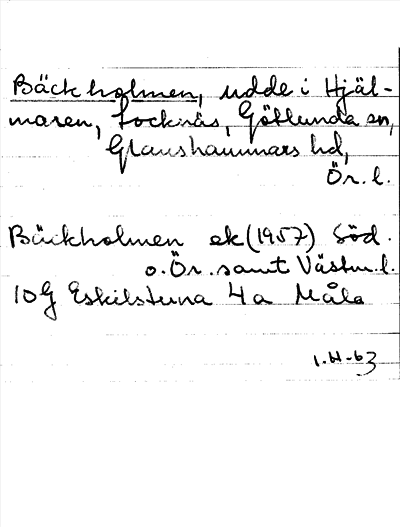 Bäckholmen, udde i Hjäl-
maren, Locknäs, Götlunda sn,
Glanshammars hd,
Ör. l.
Bäckholmen ek (1957) Söd.
o. Ör. samt Västm. l.
10G Eskilstuna 4a Måla
1.H-63